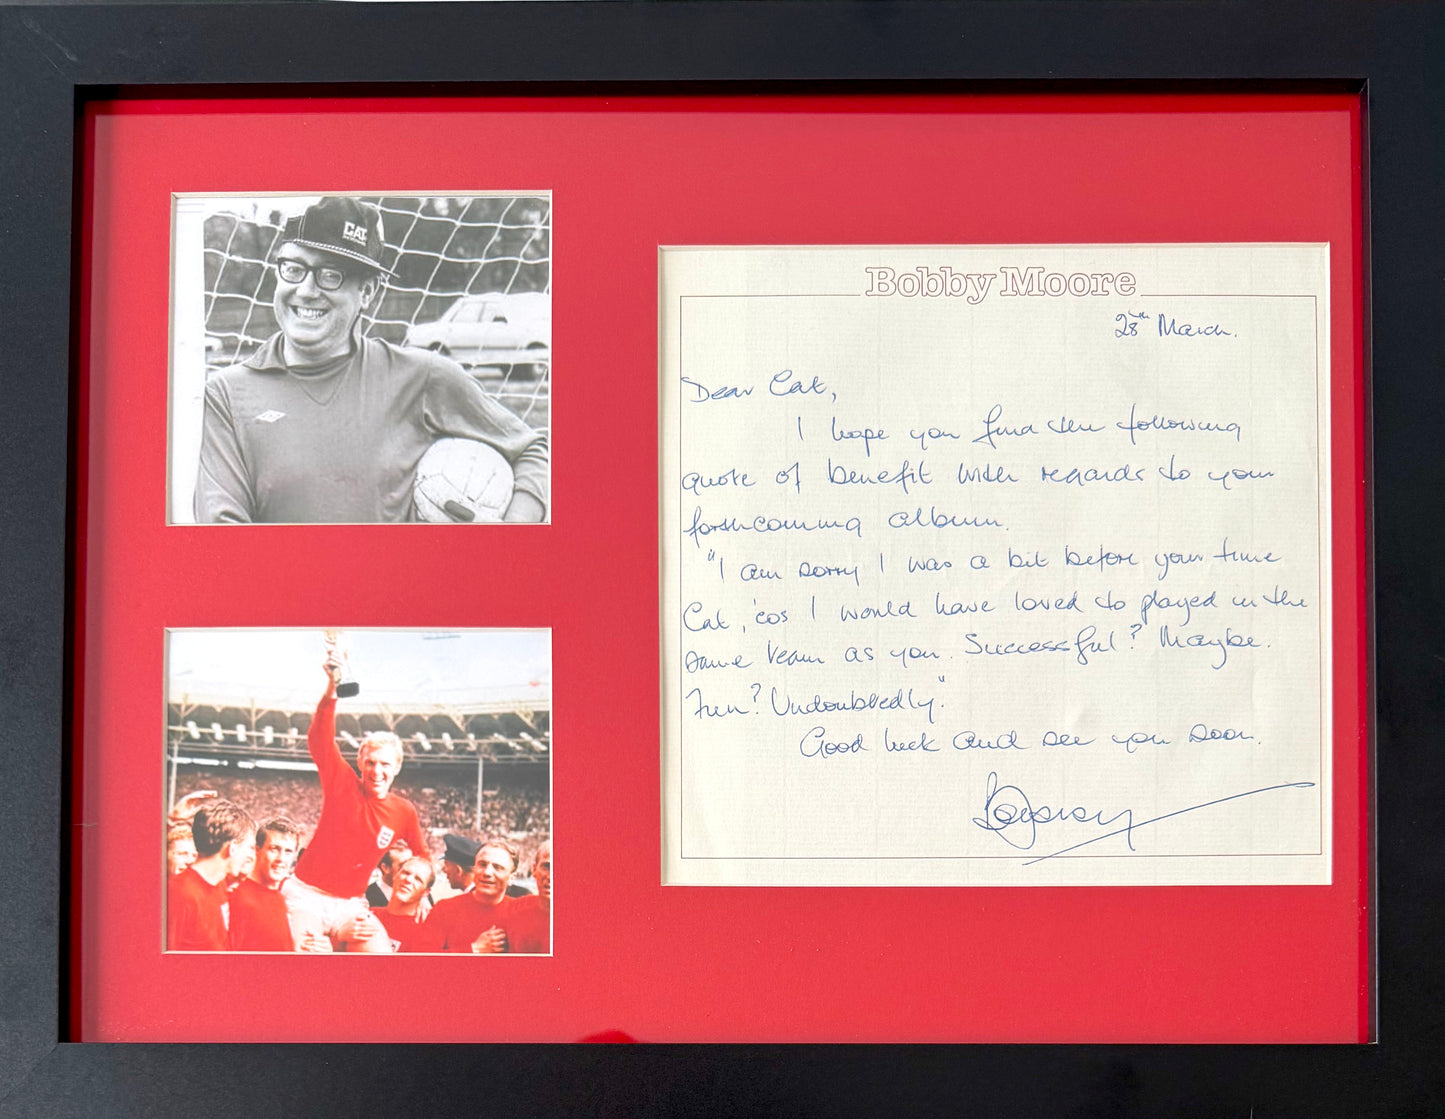 CAT
Bobby Moore
28th March.
Dear Cat,
I hope you find the following
quote of benefit with regards to your
forthcoming album.
"I am sorry I was a bit before your time
Cat, 'cos I would have loved to played in the
same team as you. Successful? Maybe.
Fun? Undoubtedly."
Good luck and see you soon.